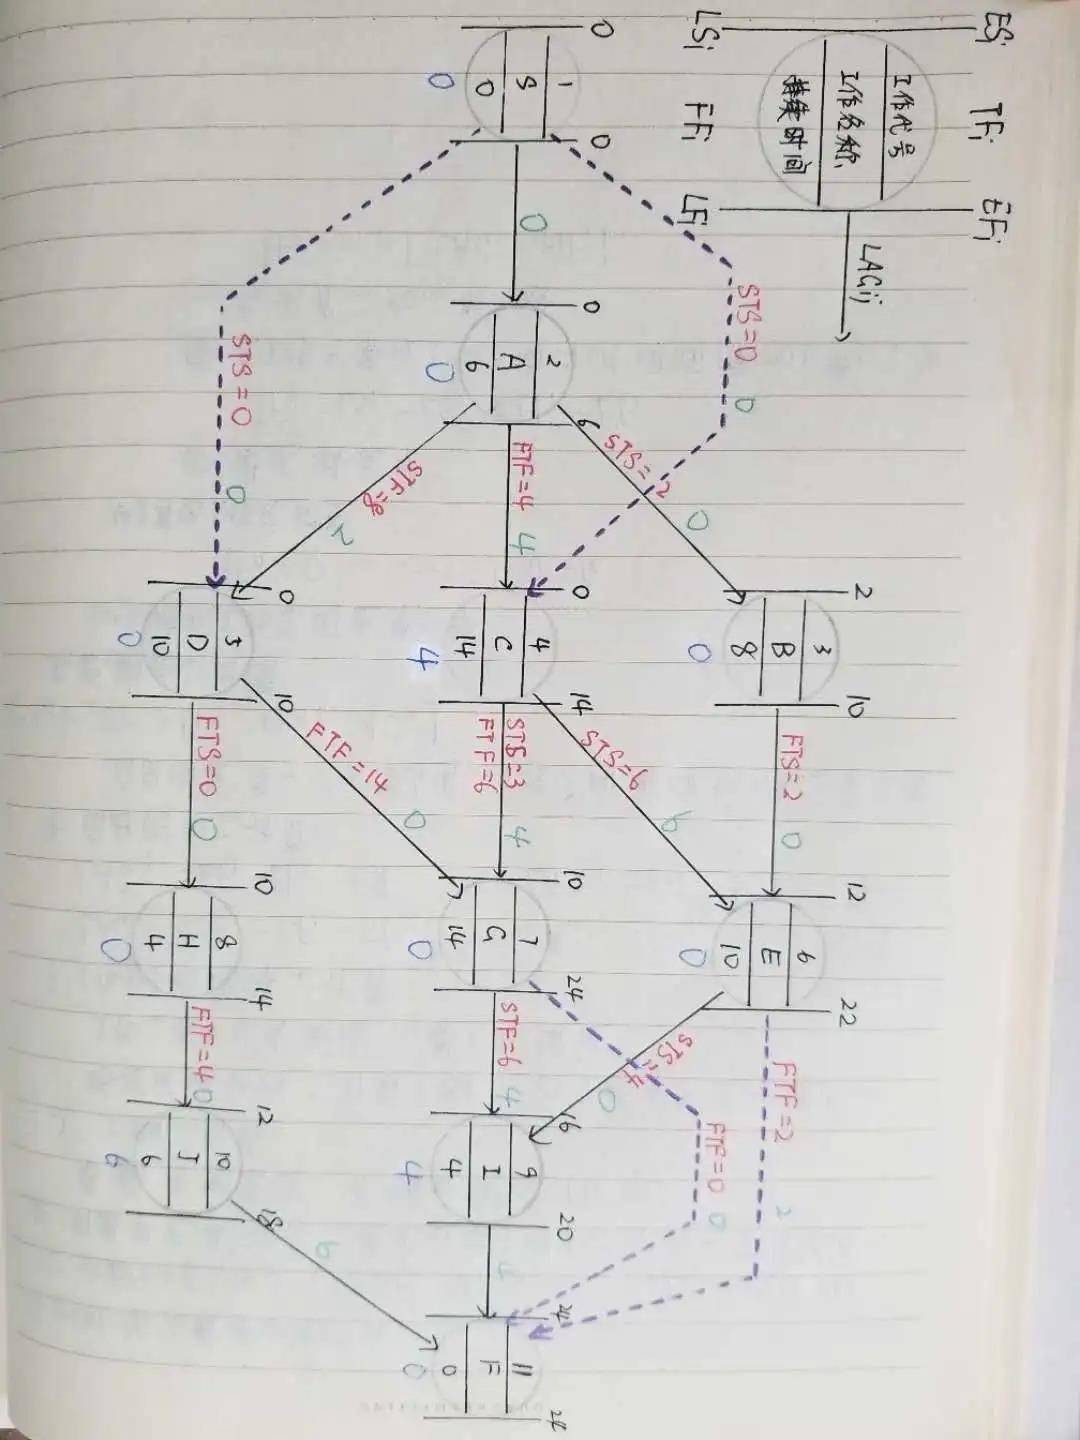 ESi TFi EFi
工作代号
工作名称
持续时间
LAGij
LSi FFi LFi
0 0
1
S
0
0
0
STS=0
0
STS=0
0
0 6
2
A
6
0
STS=2
0
FTF=4
4
STF=8
2
2 10
3
B
8
0
FTS=2
0
0 14
4
C
14
4
STS=6
6
STS=3
FTF=6
4
0 10
5
D
10
0
FTF=14
0
FTS=0
0
12 22
6
E
10
0
FTF=2
2
STS=4
0
10 24
7
G
14
0
FTF=0
0
STF=6
4
10 14
8
H
4
0
FTF=4
0
16 20
9
I
4
4
4
12 18
10
J
6
6
6
24 24
11
F
0
0